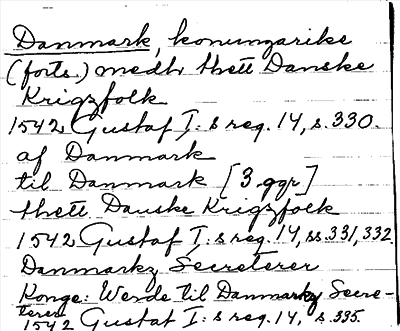 Danmark, konungarike
(forts.) medh thett Danske
Krigzfolk
1542 Gustaf I:s reg. 14, s. 330.
af Danmark
til Danmark [3 ggr]
thett Danske Krigzfolk
1542 Gustaf I:s reg. 14, ss. 331, 332
Danmarkz Secreterer
Konge: Werde til Danmarkz Secre-
terer
1542 Gustaf I:s reg. 14, s. 335.